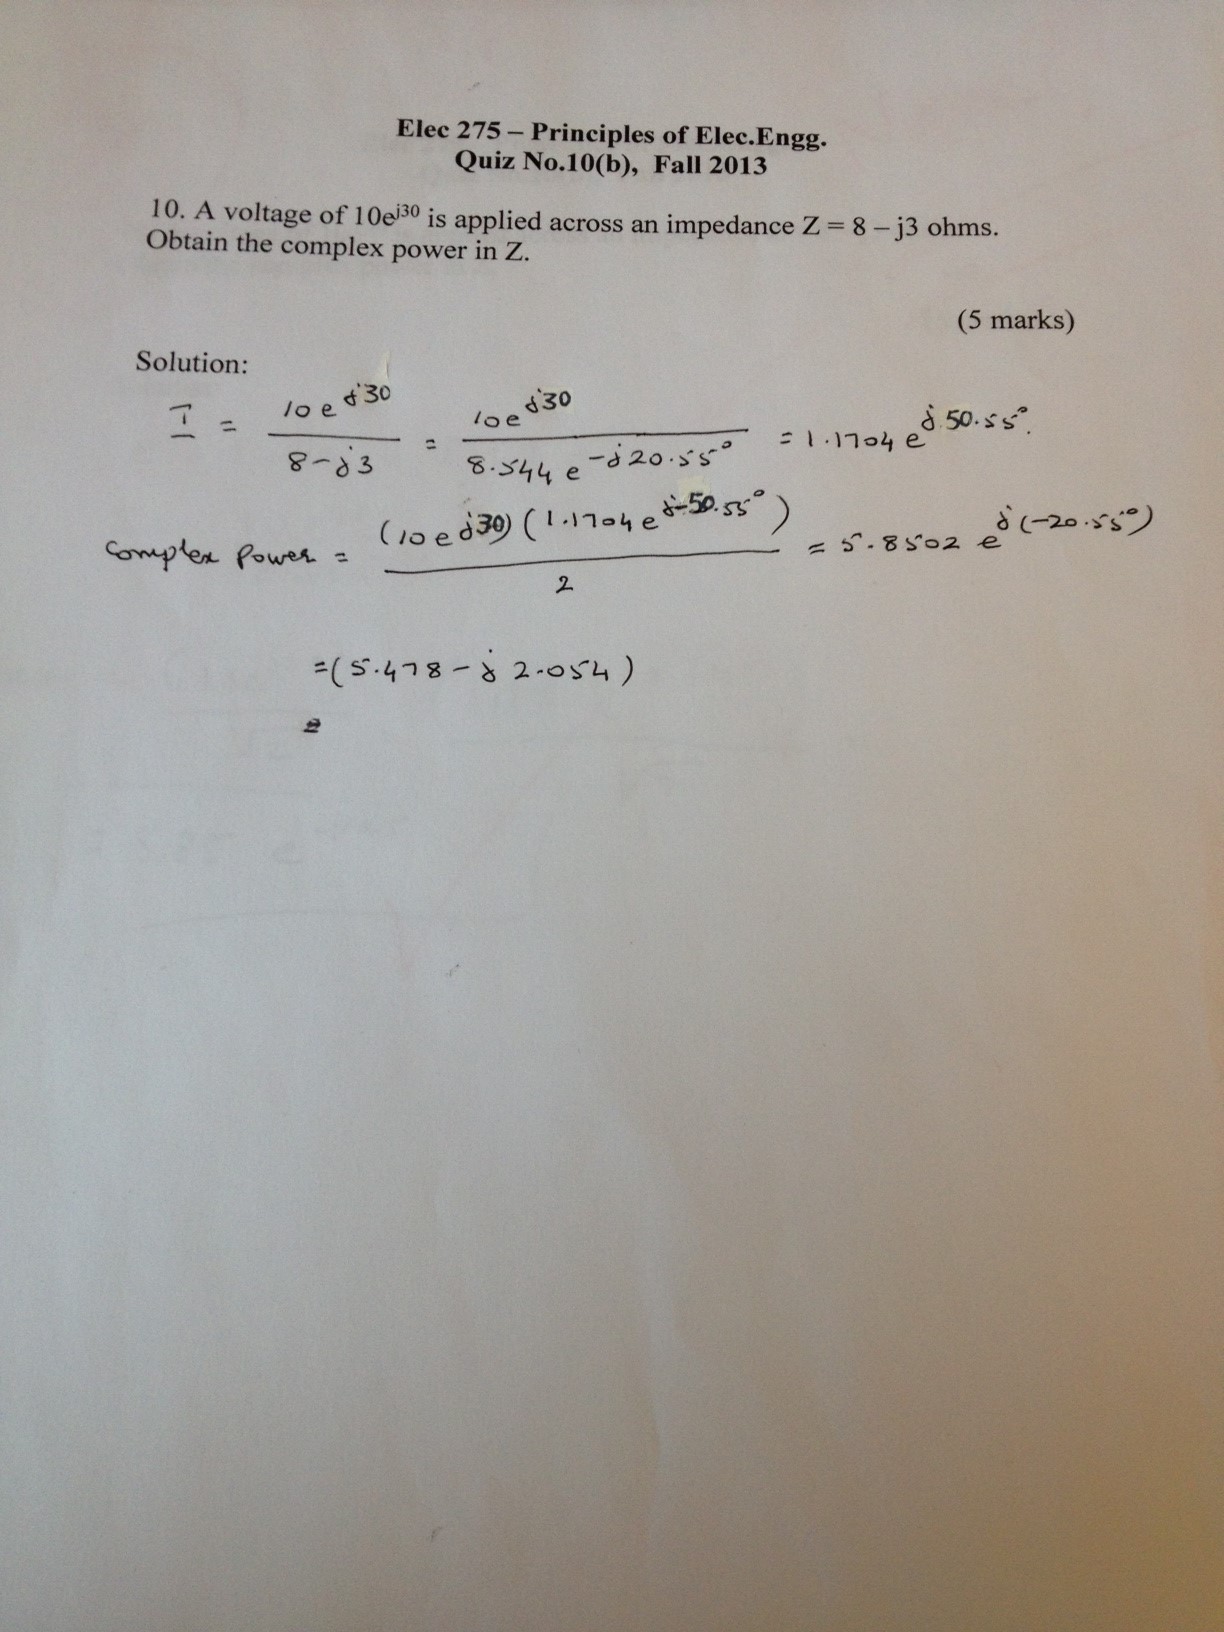 Elec 275 – Principles of Elec.Engg.
Quiz No.10(b), Fall 2013
10. A voltage of 10e^j30 is applied across an impedance Z = 8 – j3 ohms.
Obtain the complex power in Z.
(5 marks)
Solution:
I = 10e^j30 / (8-j3) = 10e^j30 / (8.544 e^-j20.55°) = 1.1704 e^j50.55°.
Complex Power = (10e^j30)(1.1704 e^j-50.55°) / 2 = 5.8502 e^j(-20.55°)
=(5.478 - j 2.054)